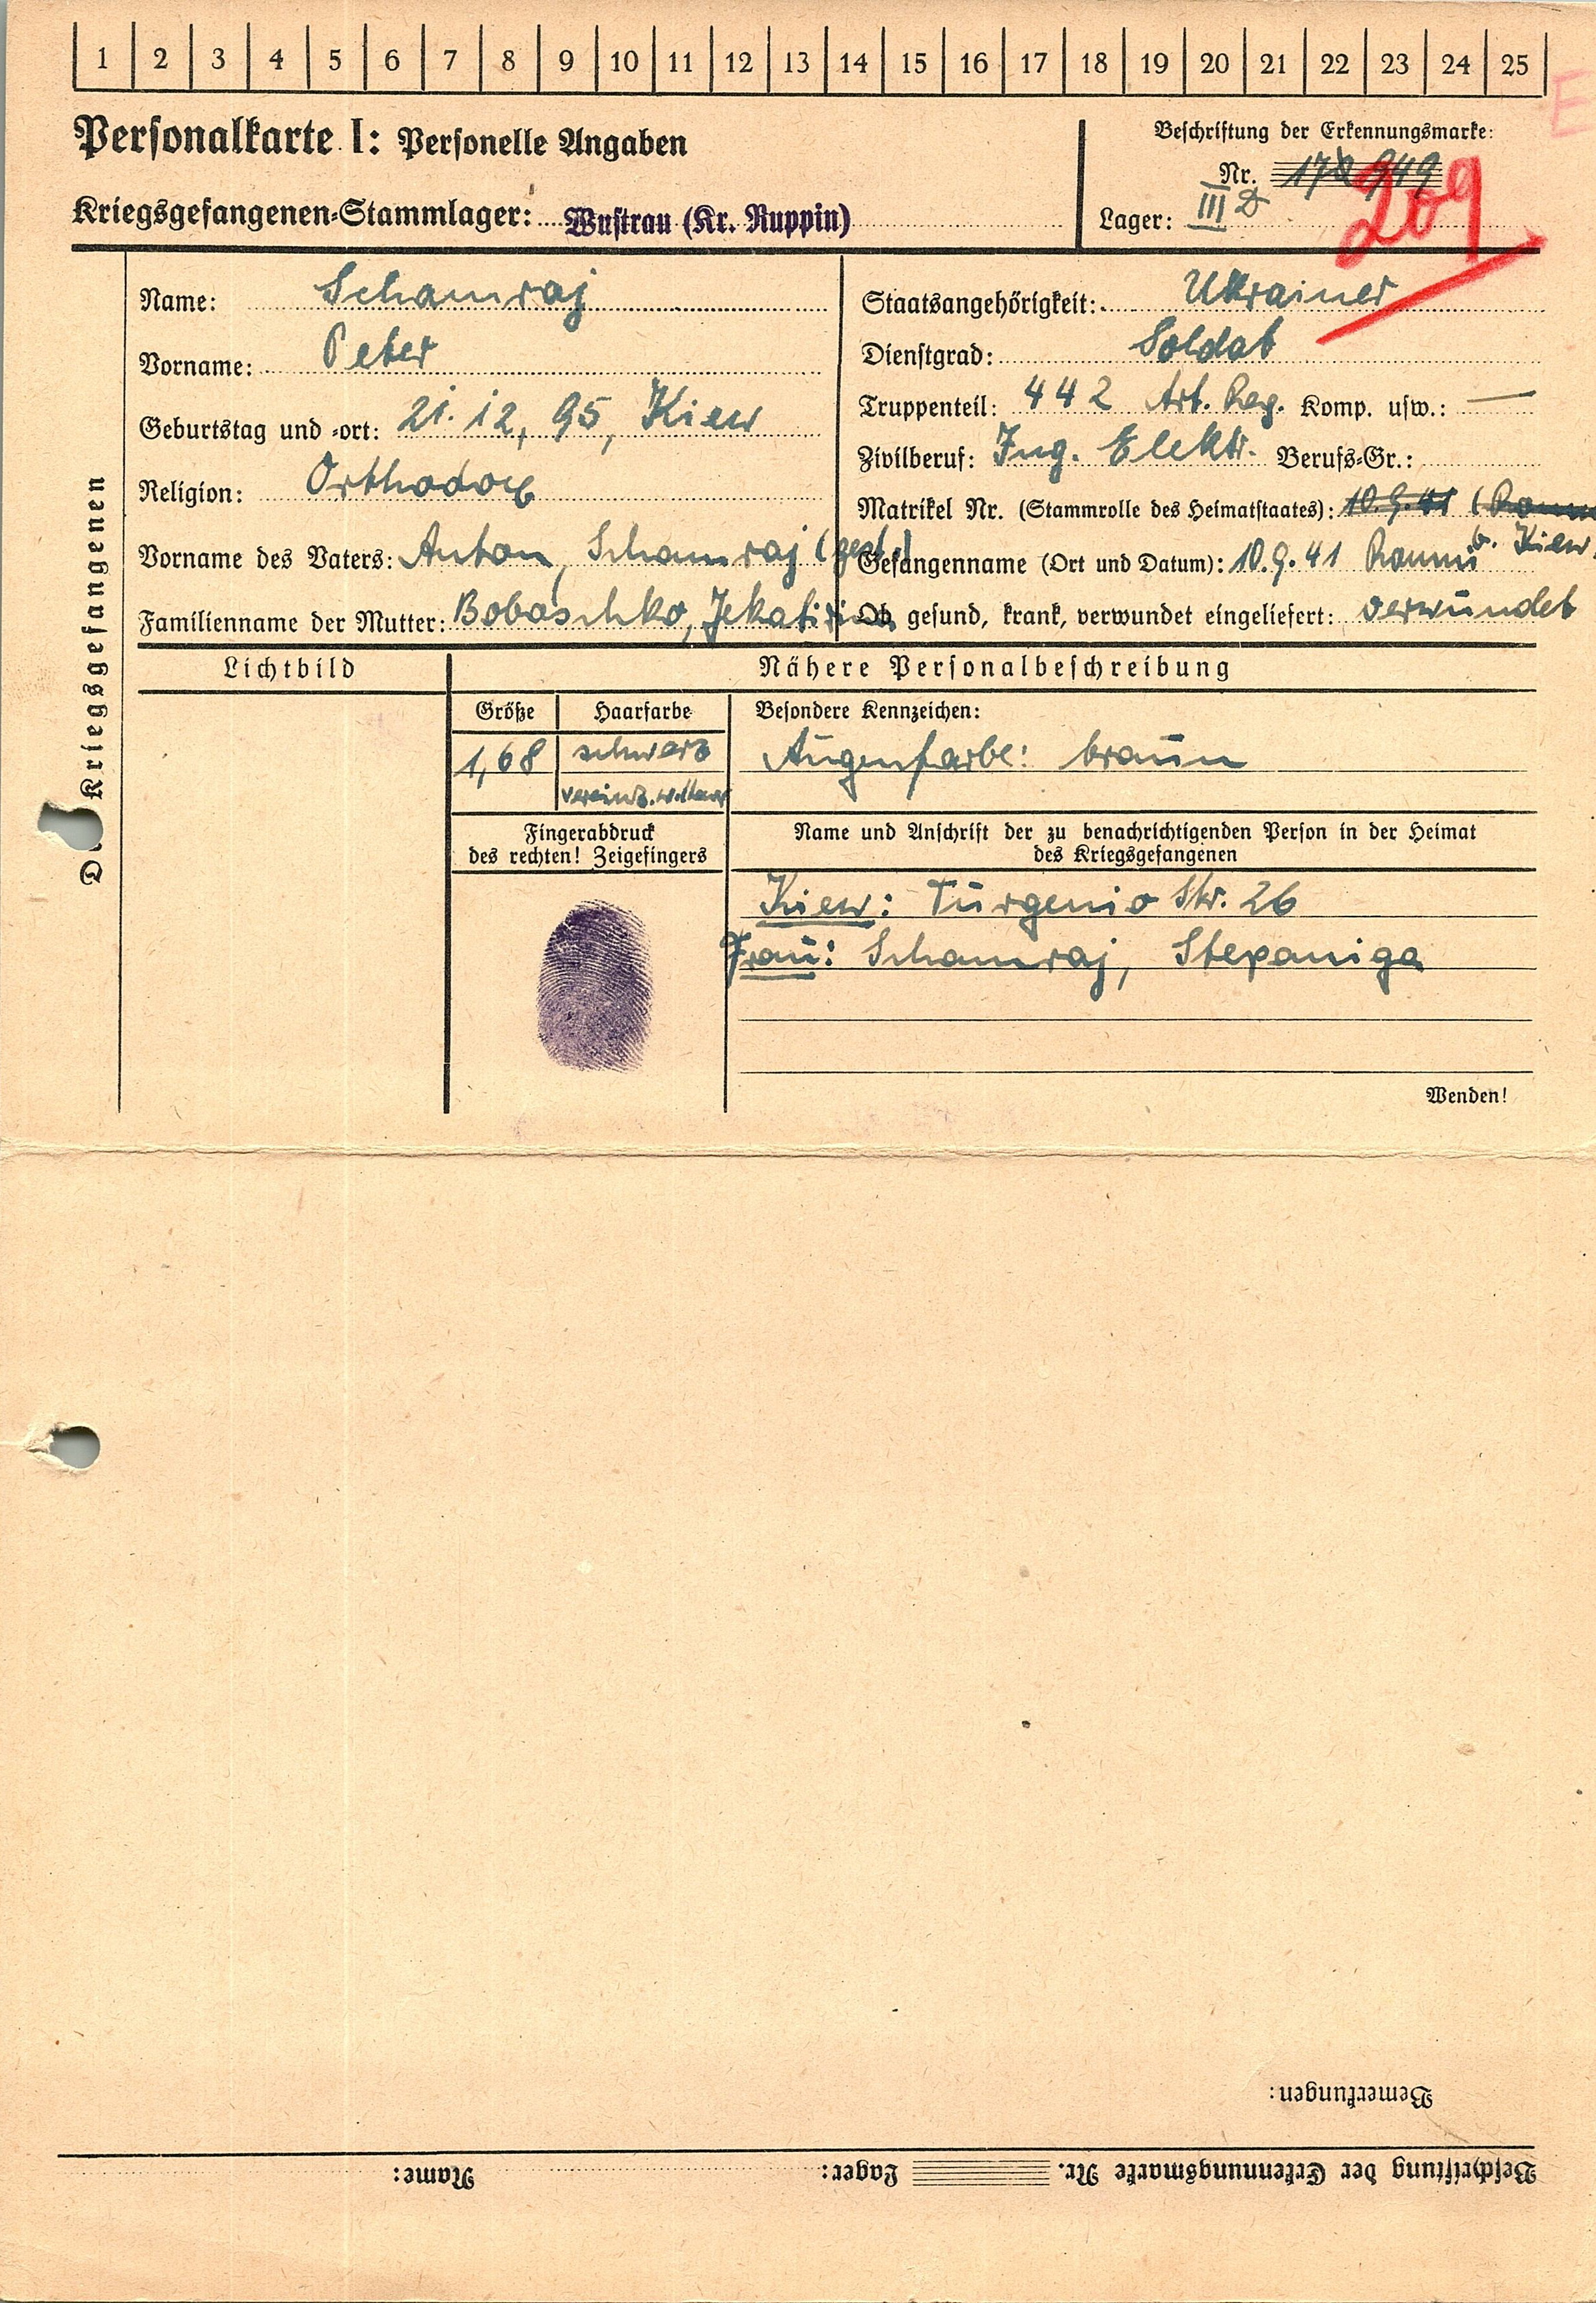 1 2 3 4 5 6 7 8 9 10 11 12 13 14 15 16 17 18 19 20 21 22 23 24 25
E
Personalkarte I: Personelle Angaben
Kriegsgefangenen-Stammlager: Wustrau (Kr. Ruppin)
Beschriftung der Erkennungsmarke:
Nr. 949
209
Lager: III D
Des Kriegsgefangenen
Name: Schamraj
Vorname: Peter
Geburtstag und -ort: 21.12.95, Kiew
Religion: Orthodox
Vorname des Vaters: Anton, Schamraj (gest.)
Familienname der Mutter: Bobaschko, Jekatirina
Staatsangehörigkeit: Ukrainer
Dienstgrad: Soldat
Truppenteil: 442 Art. Reg. Komp. usw.: —
Zivilberuf: Ing. Elektr. Berufs-Gr.:
Matrikel Nr. (Stammrolle des Heimatstaates): 10.9.41
Gefangenname (Ort und Datum): 10.9.41 Romni b. Kiew
Ob gesund, krank, verwundet eingeliefert: verwundet
Lichtbild
Nähere Personalbeschreibung
Größe
1,68
Haarfarbe
schwarz
vereinz. w. Haar
Besondere Kennzeichen:
Augenfarbe: braun
Fingerabdruck
des rechten! Zeigefingers
Name und Anschrift der zu benachrichtigenden Person in der Heimat
des Kriegsgefangenen
Kiew: Turgenio Str. 26
Frau: Schamraj, Stepaniga
Wenden!
Bemerkungen:
Beschriftung der Erkennungsmarke Nr. Lager: Name: